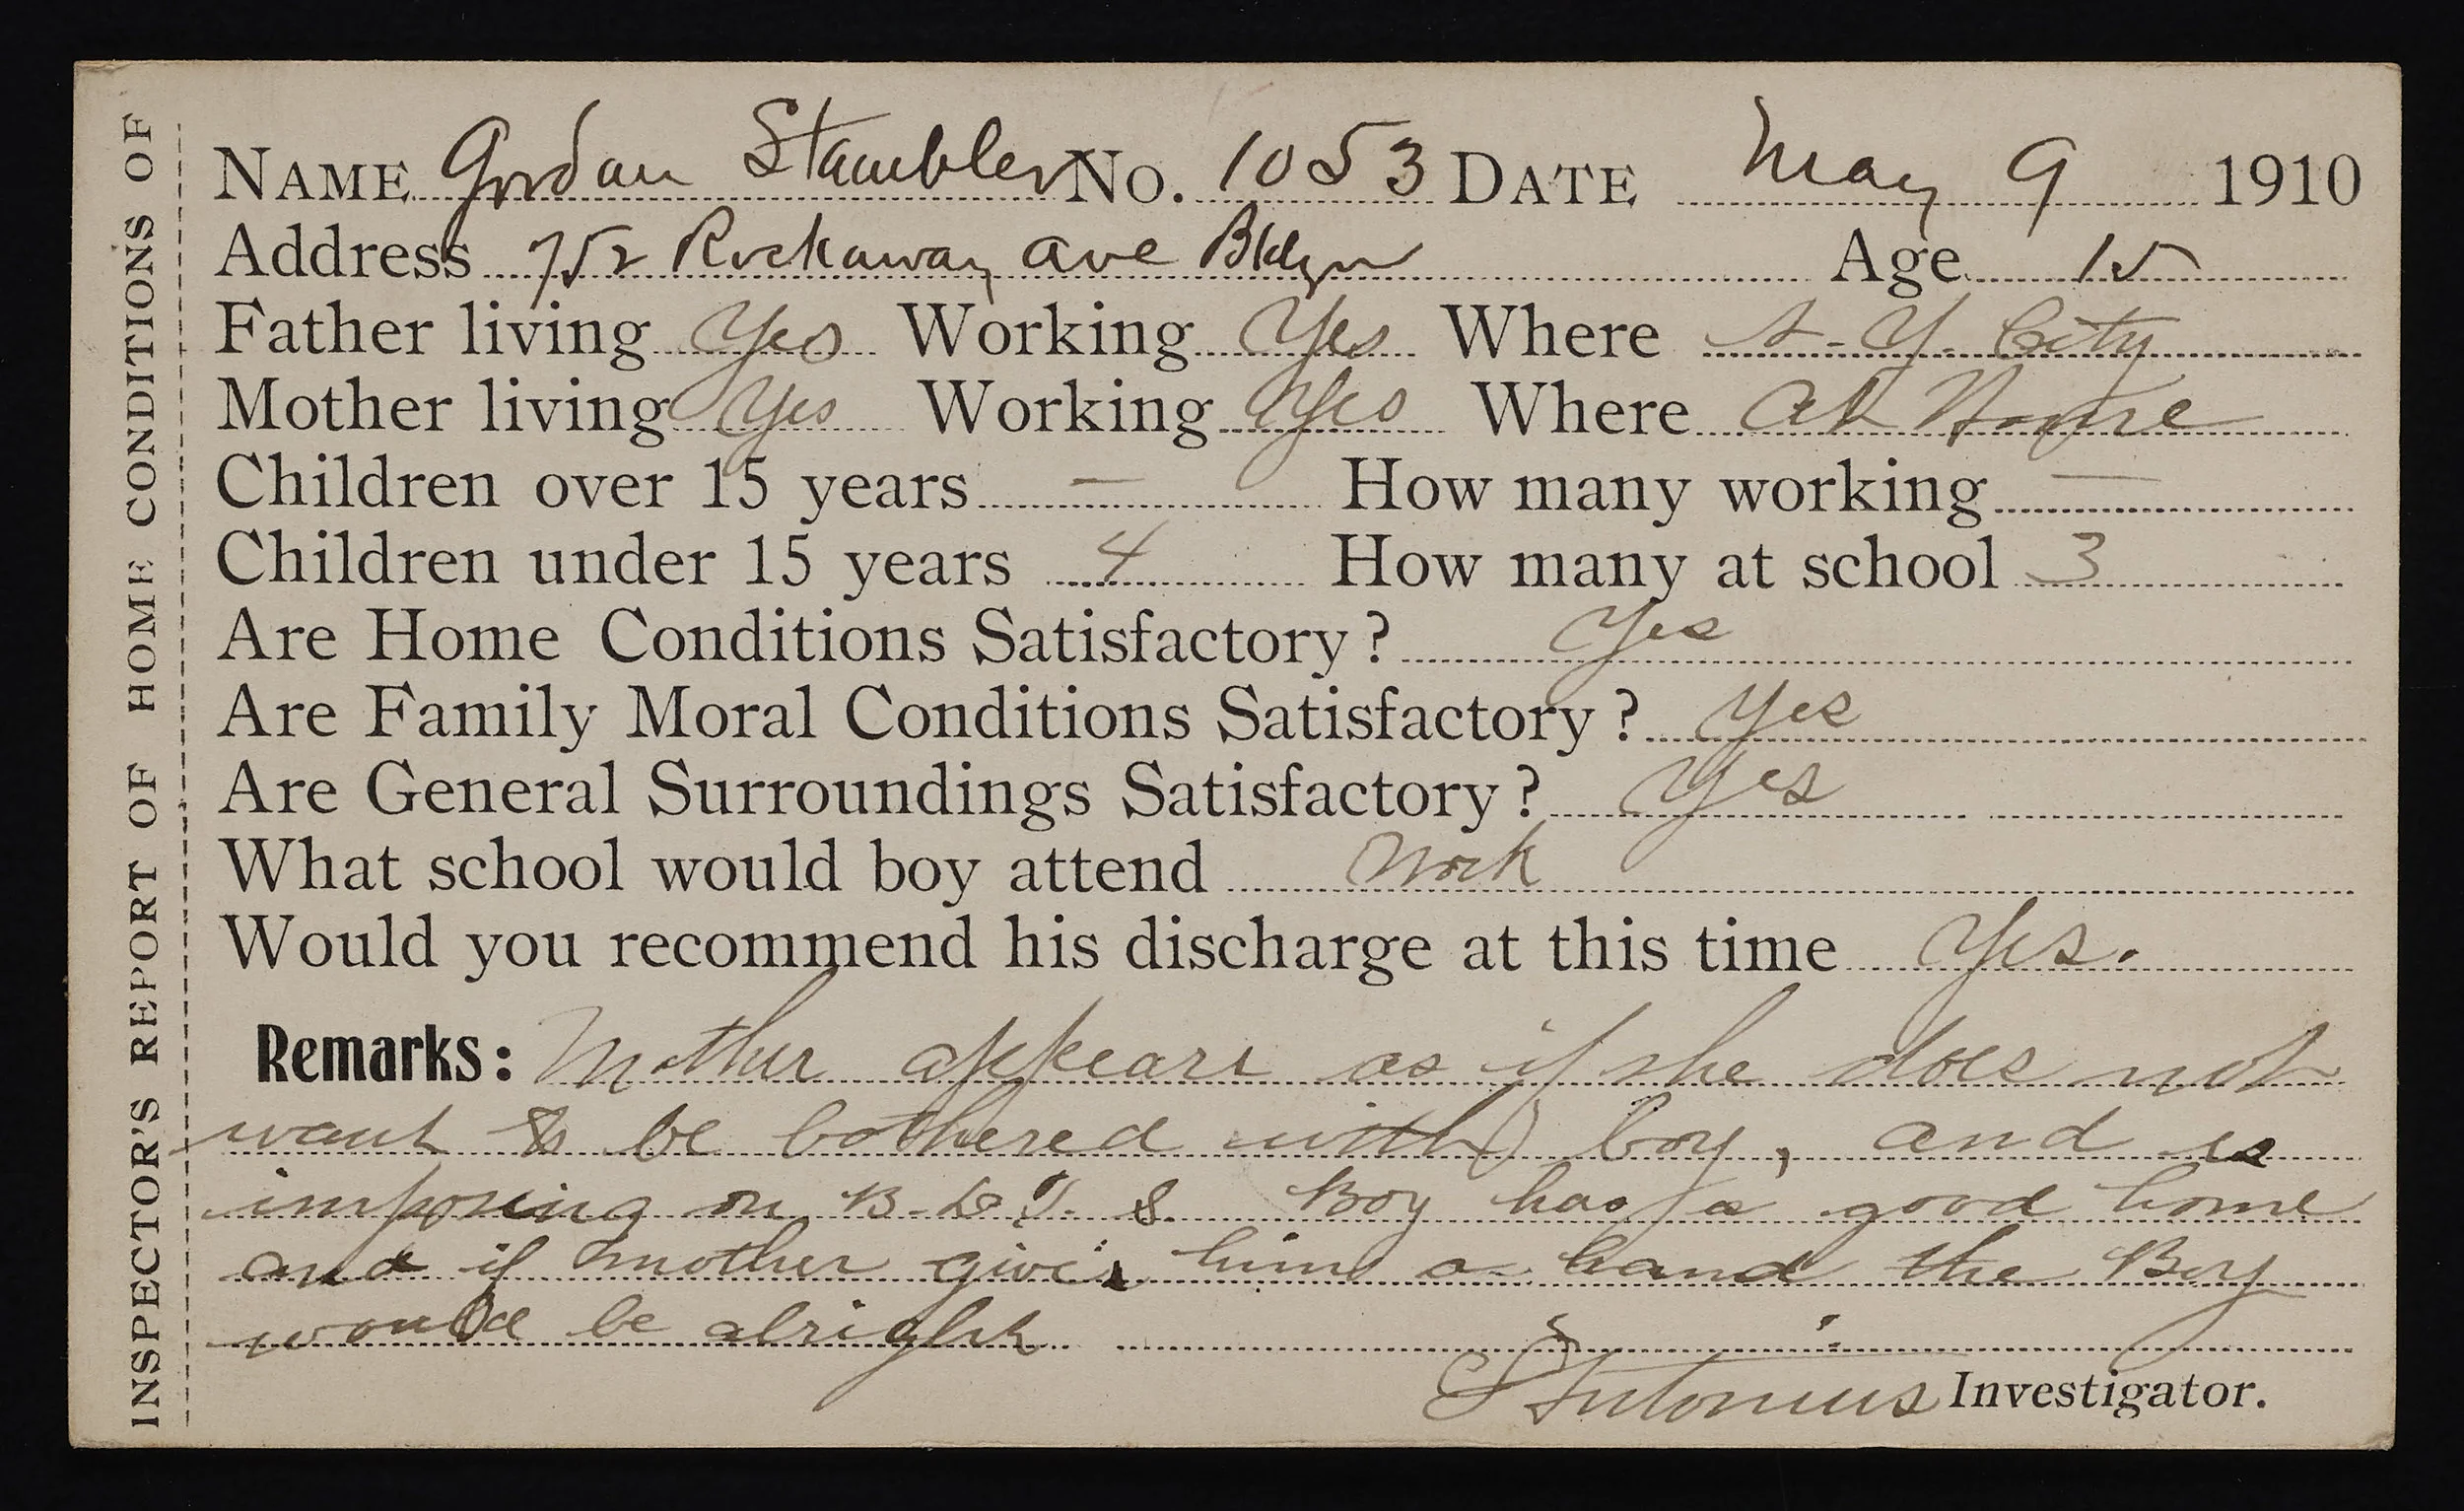 INSPECTOR'S REPORT OF HOME CONDITIONS OF
NAME Gordan Stambler No. 1053 DATE May 9 1910
Address 752 Rockaway ave Bklyn Age 15
Father living Yes Working Yes Where N. Y. City
Mother living Yes Working Yes Where At Home
Children over 15 years — How many working —
Children under 15 years 4 How many at school 3
Are Home Conditions Satisfactory? Yes
Are Family Moral Conditions Satisfactory? Yes
Are General Surroundings Satisfactory? Yes
What school would boy attend Work
Would you recommend his discharge at this time Yes.
Remarks: Mother appears as if she does not
want to be bothered with boy, and is
imposing on B.D.T.S. Boy has a good home
and if mother gives him a hand the Boy
would be alright
Investigator.